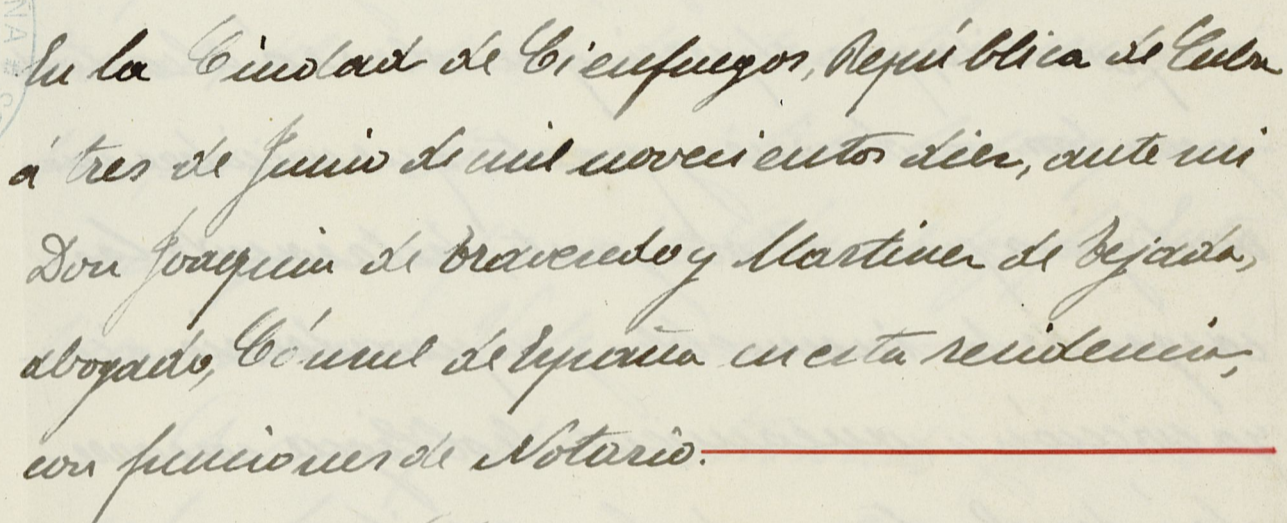 En la Ciudad de Cienfuegos, República de Cuba
á tres de Junio de mil novecientos diez, ante mi
Don Joaquin de Travesedo y Martinez de Tejada,
abogado, Cónsul de España en esta residencia,
con funciones de Notario.